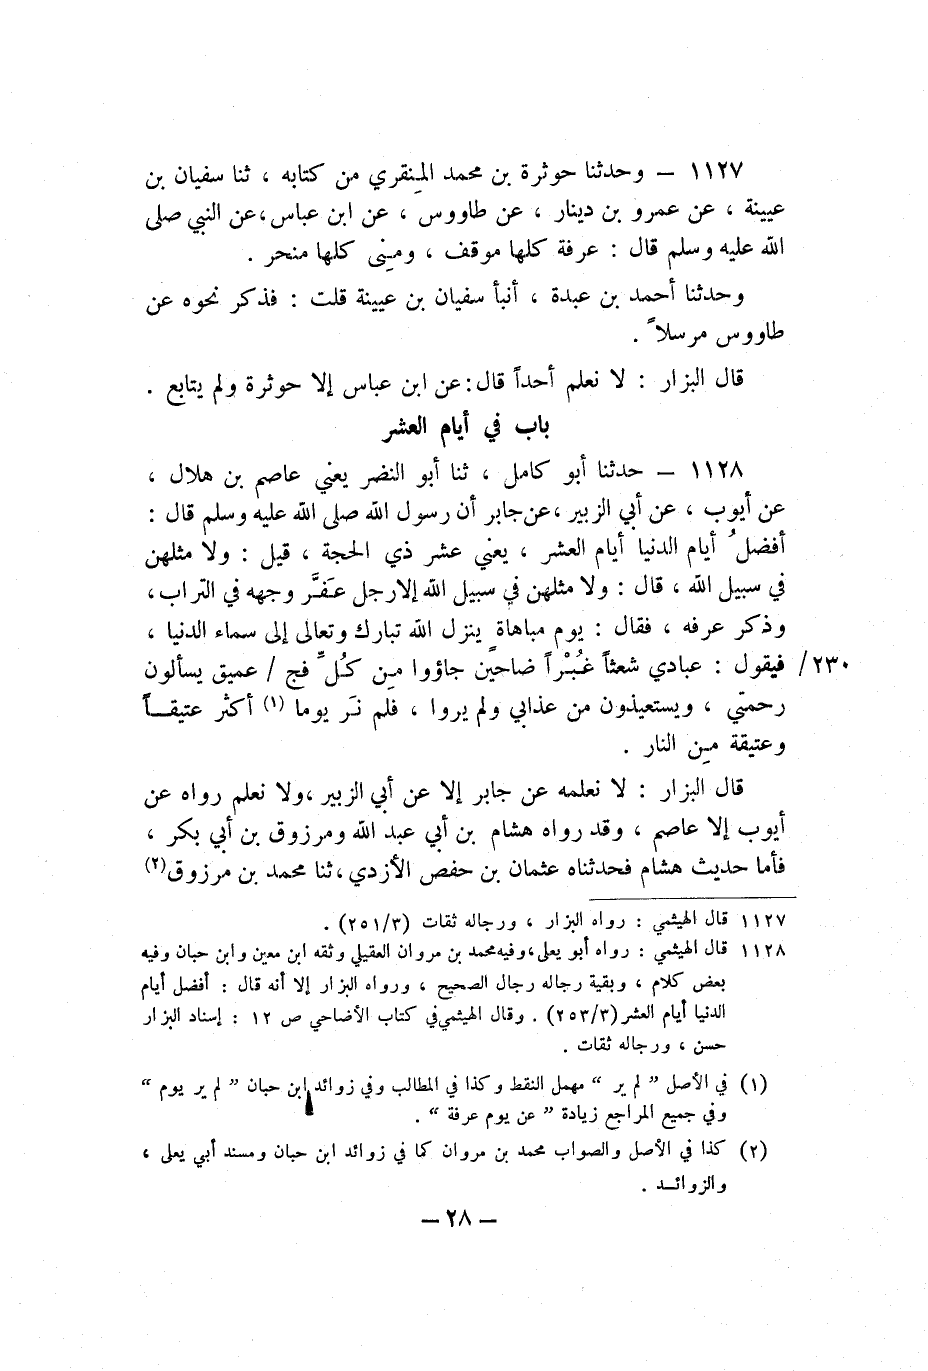 ١١٢٧ – وحدثنا حوثرة بن محمد المِنقري من كتابه ، ثنا سفيان بن
عيينة ، عن عمرو بن دينار ، عن طاووس ، عن ابن عباس،عن النبي صلى
الله عليه وسلم قال : عرفة كلها موقف ، ومِنى كلها منحر .
وحدثنا أحمد بن عبدة ، أنبأ سفيان بن عيينة قلت : فذكر نحوه عن
طاووس مرسلاً .
قال البزار : لا نعلم أحداً قال:عن ابن عباس إلا حوثرة ولم يتابع .
باب في أيام العشر
١١٢٨ – حدثنا أبو كامل ، ثنا أبو النضر يعني عاصم بن هلال ،
عن أيوب ، عن أبي الزبير ،عن جابر أن رسول الله صلى الله عليه وسلم قال :
أفضلُ أيام الدنيا أيام العشر ، يعني عشر ذي الحجة ، قيل : ولا مثلهن
في سبيل الله ، قال : ولا مثلهن في سبيل الله إلا رجل عَفَّر وجهه في التراب،
وذكر عرفه ، فقال : يوم مباهاةٍ ينزل الله تبارك وتعالى إلى سماء الدنيا ،
٢٣٠/ فيقول : عبادي شعثاً غُبْراً ضاحين جاؤوا مِن كُلِّ فج / عميق يسألون
رحمتي ، ويستعيذون من عذابي ولم يروا ، فلم نَر يوما (١) أكثر عتيقـاً
وعتيقة مِن النار .
قال البزار : لا نعلمه عن جابر إلا عن أبي الزبير ،ولا نعلم رواه عن
أيوب إلا عاصم ، وقد رواه هشام بن أبي عبد الله ومرزوق بن أبي بكر ،
فأما حديث هشام فحدثناه عثمان بن حفص الأزدي، ثنا محمد بن مرزوق(٢)
١١٢٧ قال الهيثمي : رواه البزار ، ورجاله ثقات (٢٥١/٣) .
١١٢٨ قال الهيثمي : رواه أبو يعلى،وفيه محمد بن مروان العقيلي وثقه ابن معين وابن حبان وفيه
بعض كلام ، وبقية رجاله رجال الصحيح ، ورواه البزار إلا أنه قال : أفضل أيام
الدنيا أيام العشر (٢٥٣/٣) . وقال الهيثمي في كتاب الأضاحي ص ١٢ : إسناد البزار
حسن ، ورجاله ثقات .
(١) في الأصل ” لم ير “ مهمل النقط وكذا في المطالب وفي زوائد ابن حبان ” لم ير يوم “
وفي جميع المراجع زيادة ” عن يوم عرفة “ .
(٢) كذا في الأصل والصواب محمد بن مروان كما في زوائد ابن حبان ومسند أبي يعلى ،
والزوائـد .
– ٢٨ –